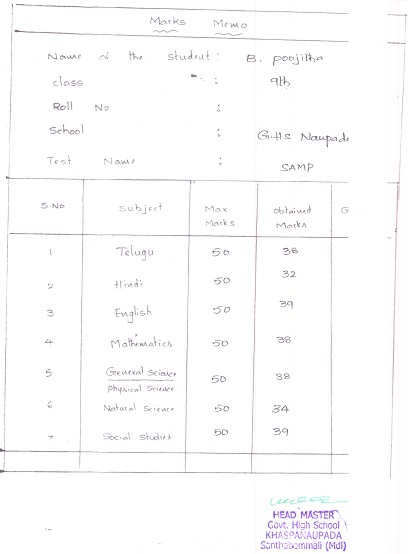 Marks Memo
Name of the student : B. poojitha
class : 9th
Roll No :
School : G.H.S Naupade
Test Name : SAMP
S.NO Subject Max Marks obtained Marks G
1 Telugu 50 38
2 Hindi 50 32
3 English 50 39
4 Mathematics 50 38
5 General Science 50 38
Physical Science
6 Natural Science 50 34
7 Social Studies 50 39
HEAD MASTER
Govt. High School
KHASPANAUPADA
Santhabommali (Mdl)